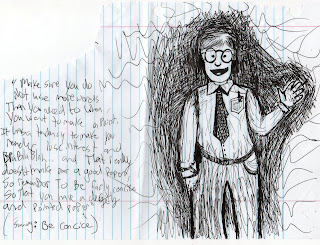 "Make sure you do
not use more words
Than you need to when
you want to make a Point.
It has tendency to make you
reader lose interest and
Blah Blah Blah... and That really
doesn't make for a good Report
So remember To be fairly concise
So That you have a
and Pointed paper"
Be Concise